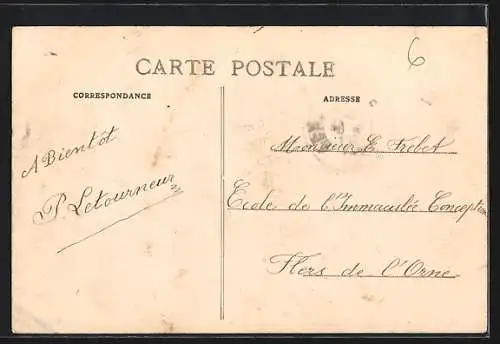 6
CARTE POSTALE
CORRESPONDANCE
ADRESSE
A Bientot
P. Letourneur
Monsieur E. Frebet
Ecole de l'Immaculée Conception
Flers de l'Orne